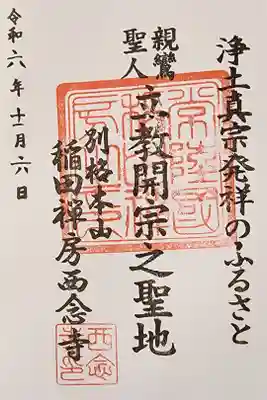 浄土真宗発祥のふるさと
親鸞聖人
立教開宗之聖地
別格本山
稲田禅房西念寺
令和六年十一月六日
常陸國
西念